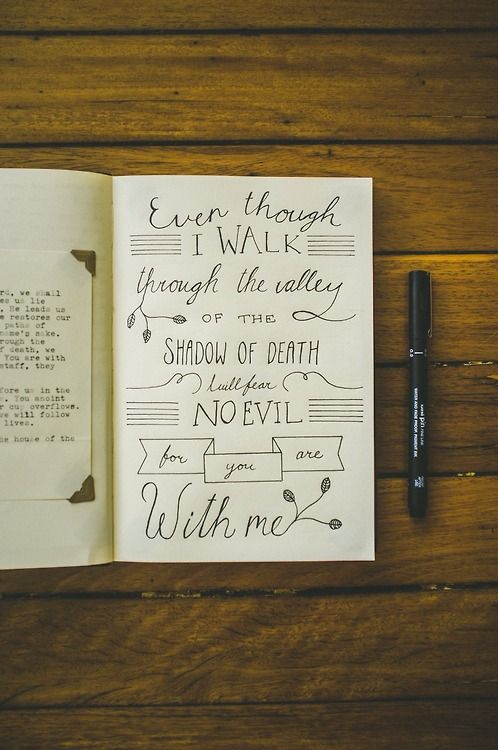 rd, we shall
es us lie
. He leads us
e restores our
paths of
name's sake.
rough the
f death, we
You are with
staff, they
fore us in the
m. You anoint
r cup overflows.
we will follow
lives.
he house of the
Even though
I WALK
through the valley
OF THE
SHADOW OF DEATH
I will fear
NO EVIL
for you are
With me
uni pin FINE LINE
WATER AND FADE PROOF, PIGMENT INK
0.3